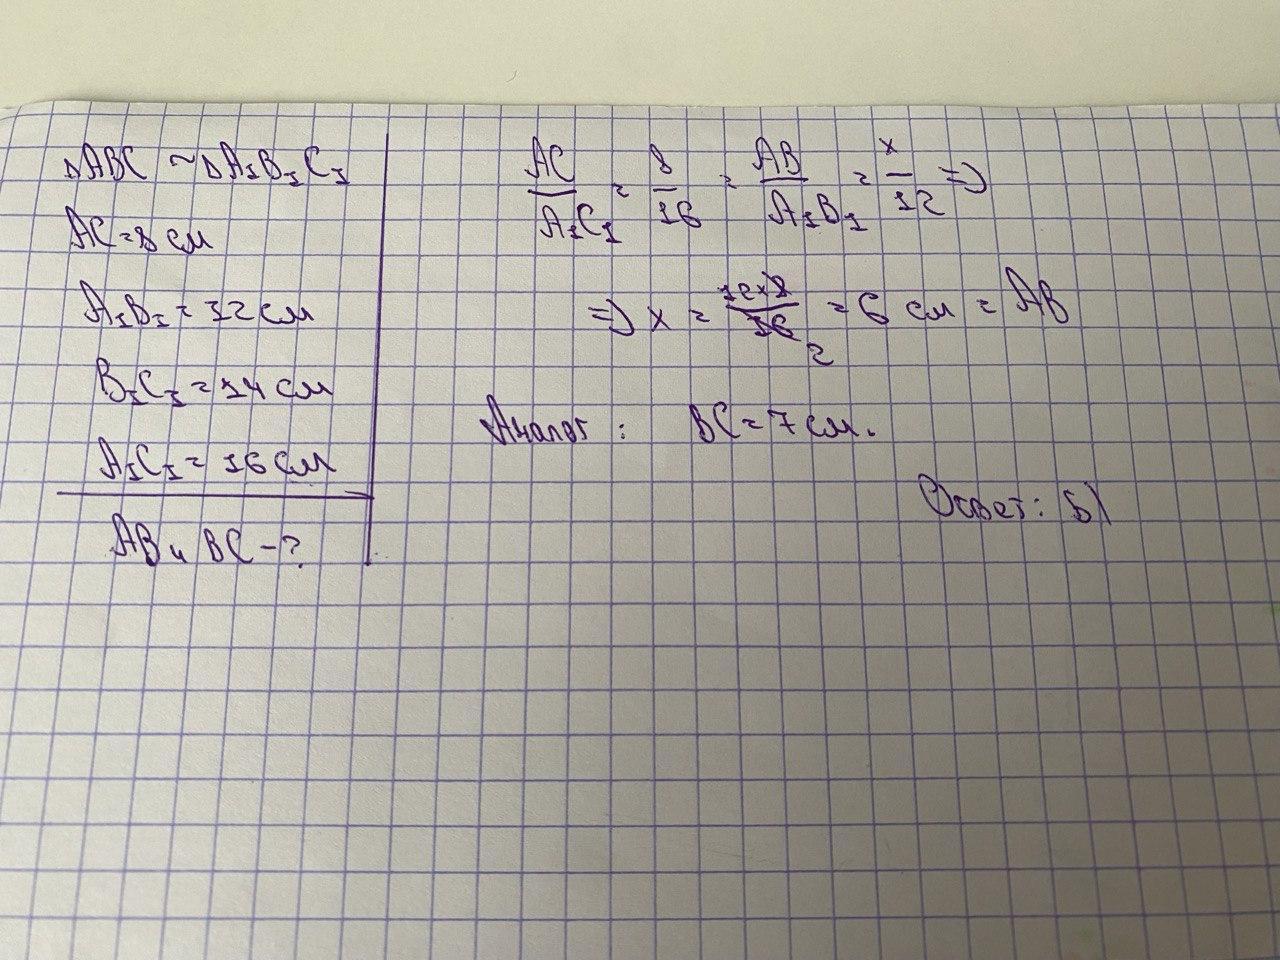 ΔABC ~ ΔA₁B₁C₁
AC = 8 см
A₁B₁ = 12 см
B₁C₁ = 14 см
A₁C₁ = 16 см
AB и BC - ?
AC/A₁C₁ = 8/16 = AB/A₁B₁ = x/12 =>
=> x = 12×8/16 2 = 6 см = AB
Аналог : BC = 7 см.
Ответ: Б)